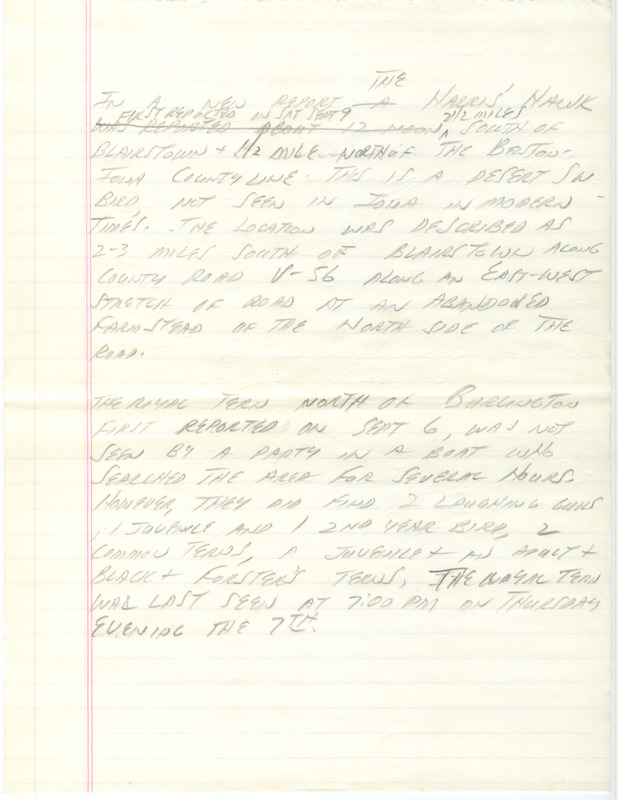 THE
IN A NEW REPORT A HARRIS' HAWK
FIRST REPORTED ON SAT SEPT 9 2 1/2 MILES
WAS REPORTED ABOUT 12 NOON SOUTH OF
BLAIRSTOWN + 1/2 MILE NORTH OF THE BENTON-
IOWA COUNTY LINE. THIS IS A DESERT SW
BIRD, NOT SEEN IN IOWA IN MODERN
TIMES. THE LOCATION WAS DESCRIBED AS
2-3 MILES SOUTH OF BLAIRSTOWN ALONG
COUNTY ROAD V-56 ALONG AN EAST-WEST
STRETCH OF ROAD AT AN ABANDONED
FARMSTEAD OF THE NORTH SIDE OF THE
ROAD.
THE ROYAL TERN NORTH OF BURLINGTON
FIRST REPORTED ON SEPT 6, WAS NOT
SEEN BY A PARTY IN A BOAT WHO
SEARCHED THE AREA FOR SEVERAL HOURS.
HOWEVER, THEY DID FIND 2 LAUGHING GULLS
, 1 JUVENILE AND 1 2ND YEAR BIRD, 2
COMMON TERNS, A JUVENILE + AN ADULT +
BLACK + FORSTER'S TERNS. THE ROYAL TERN
WAS LAST SEEN AT 7:00 PM ON THURSDAY
EVENING THE 7TH.